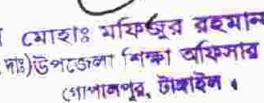 মোহাঃ মফিজুর রহমান
মাঃ) উপজেলা শিক্ষা অফিসার
গোপালপুর, টাঙ্গাইল ।